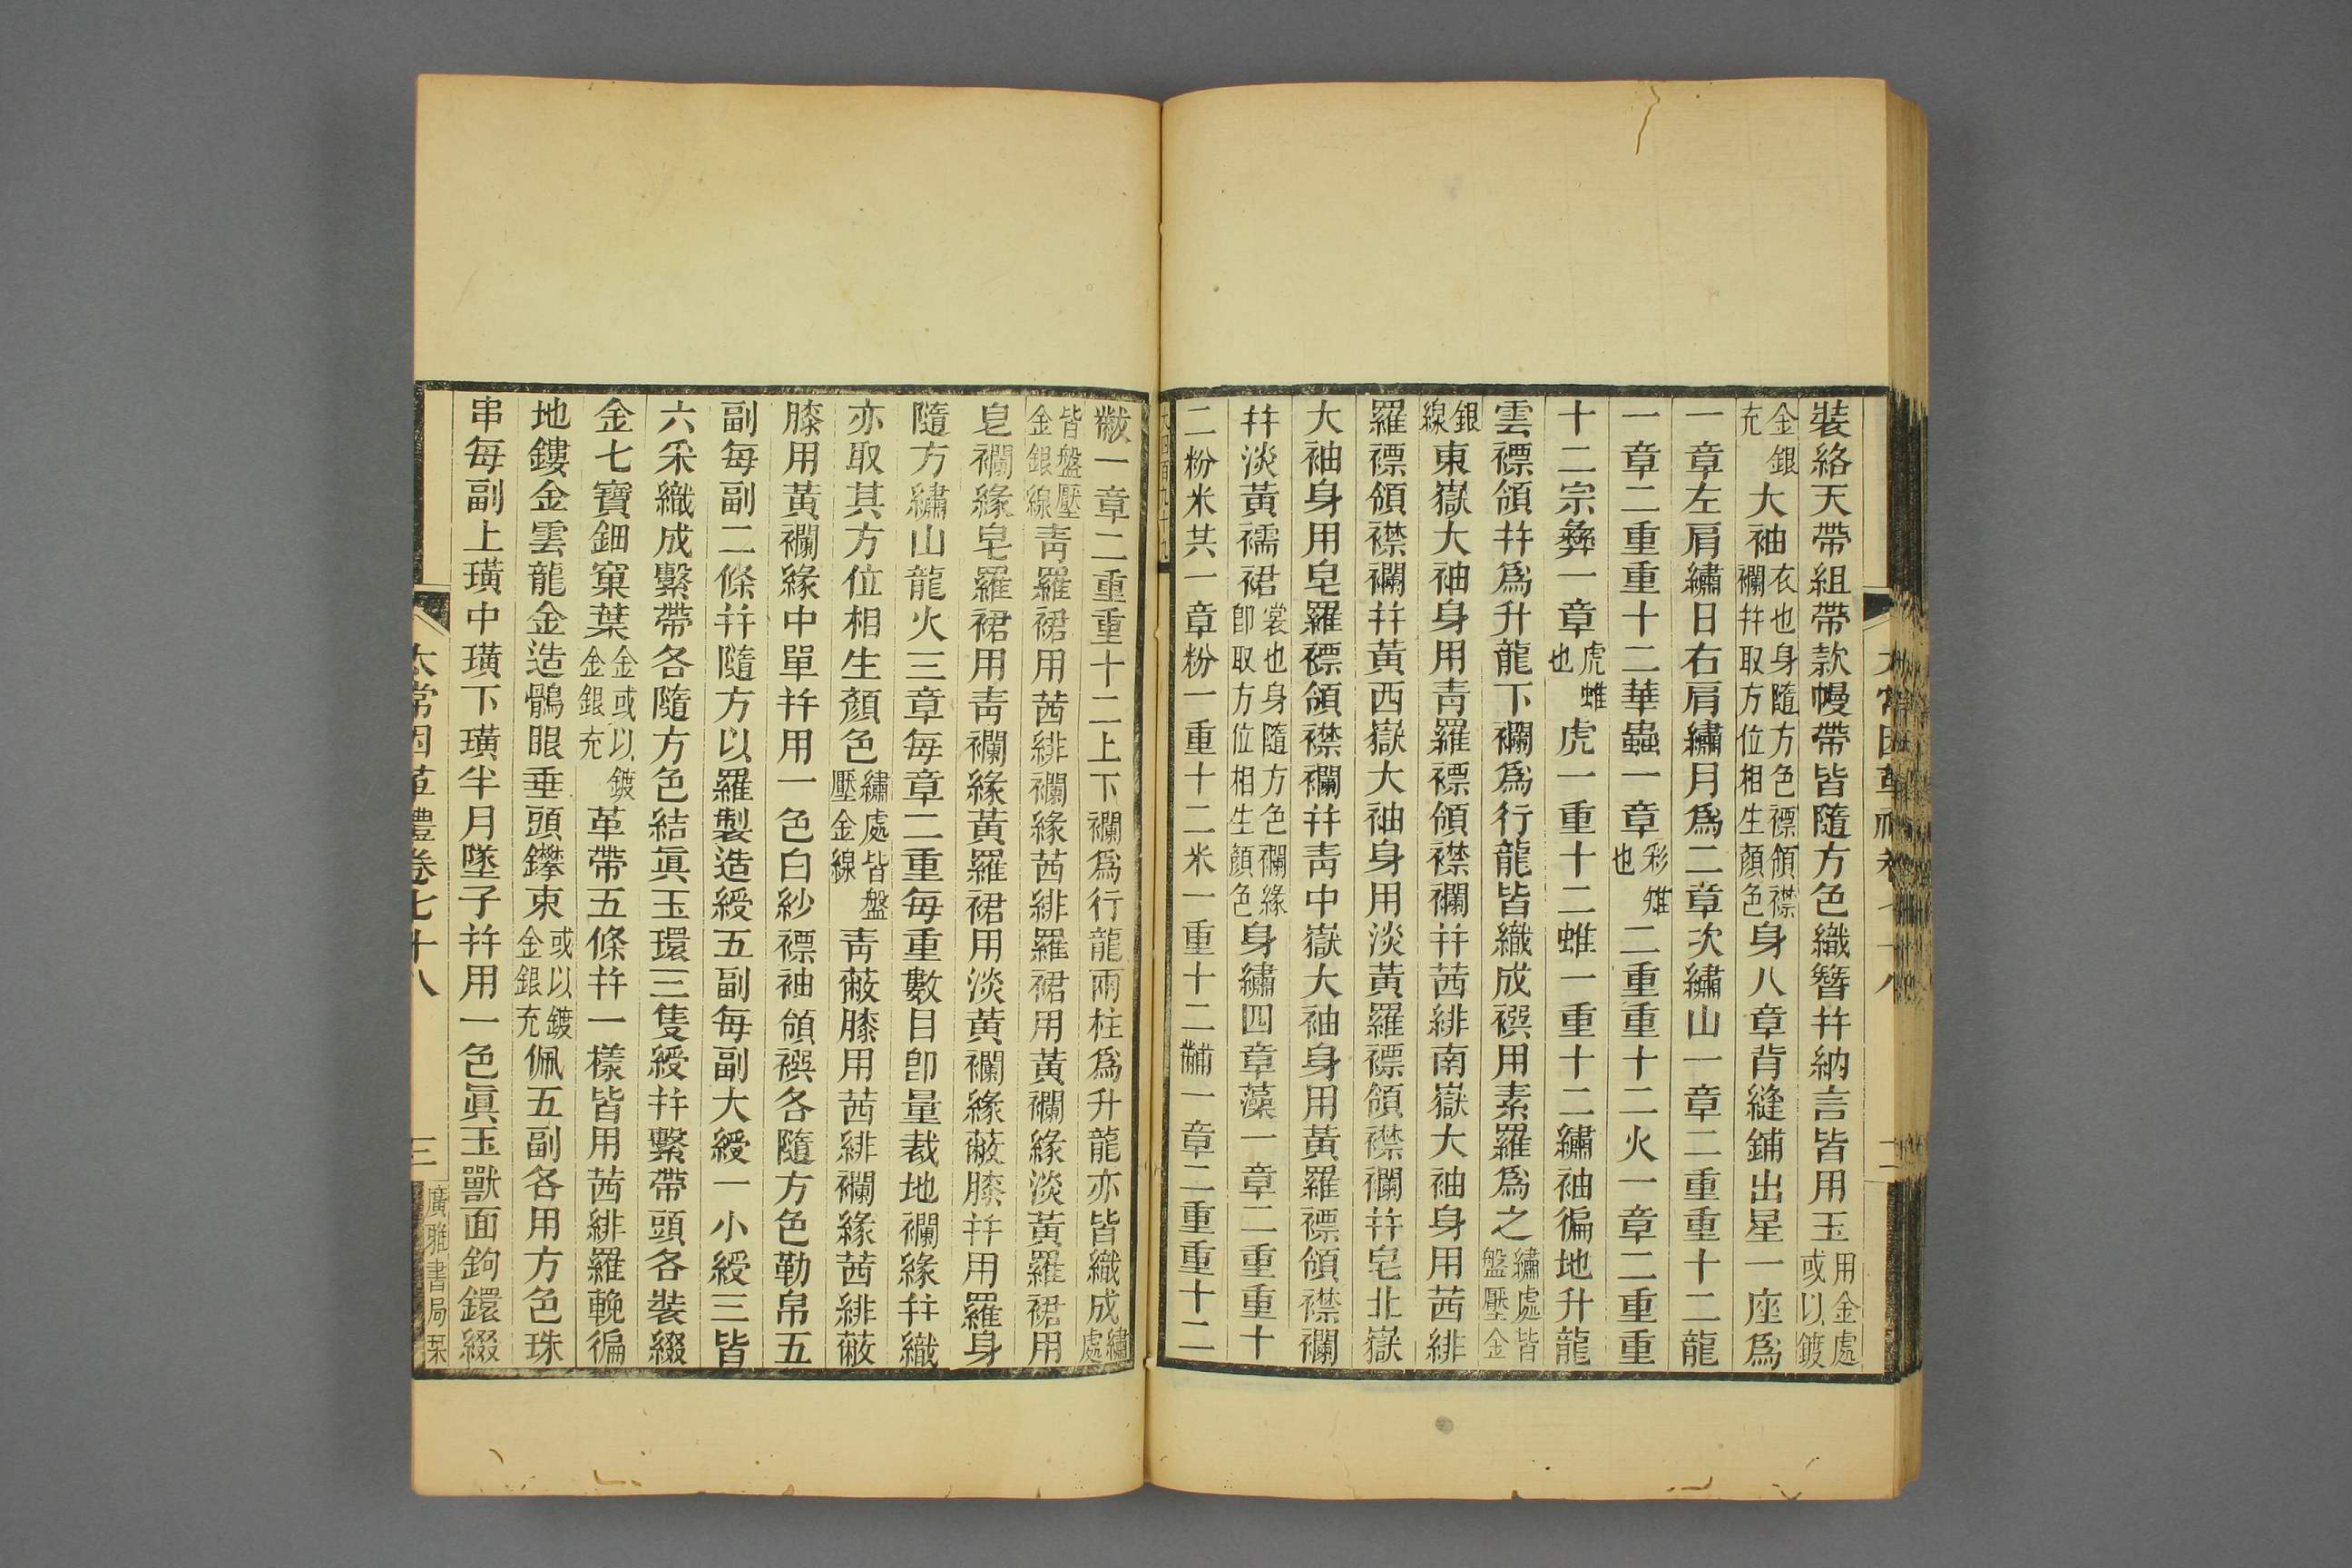 裝絡天帶組帶款幔帶皆隨方色織簪幷納言皆用玉用金處或以鍍
金銀充大袖衣也身隨方色褾領襟襴幷取方位相生顏色身八章背縫鋪出星一座爲
一章左肩繡日右肩繡月爲二章次繡山一章二重重十二龍
一章二重重十二華蟲一章彩雉也二重重十二火一章二重重
十二宗彝一章虎蜼也虎一重十二蜼一重十二繡袖徧地升龍
雲褾領幷爲升龍下襴爲行龍皆織成襈用素羅爲之繡處皆盤壓金
銀線東嶽大袖身用靑羅褾領襟襴幷茜緋南嶽大袖身用茜緋
羅褾領襟襴幷黃西嶽大袖身用淡黃羅褾領襟襴幷皂北嶽
大袖身用皂羅褾領襟襴幷靑中嶽大袖身用黃羅褾領襟襴
幷淡黃襦裙裳也身隨方色襴緣卽取方位相生顏色身繡四章藻一章二重重十
二粉米共一章粉一重十二米一重十二黼一章二重重十二
黻一章二重重十二上下襴爲行龍兩柱爲升龍亦皆織成繡處
皆盤壓金銀線靑羅裙用茜緋襴緣茜緋羅裙用黃襴緣淡黃羅裙用
皂襴緣皂羅裙用靑襴緣黃羅裙用淡黃襴緣蔽膝幷用羅身
隨方繡山龍火三章每章二重每重數目卽量裁地襴緣幷織
亦取其方位相生顏色繡處皆盤壓金線靑蔽膝用茜緋襴緣茜緋蔽
膝用黃襴緣中單幷用一色白紗褾袖領襈各隨方色勒帛五
副每副二條幷隨方以羅製造綬五副每副大綬一小綬三皆
六采織成繫帶各隨方色結眞玉環三隻綬幷繫帶頭各裝綴
金七寶鈿窠葉金或以鍍金銀充革帶五條幷一樣皆用茜緋羅鞔徧
地鏤金雲龍金造鶻眼垂頭鑻束或以鍍金銀充佩五副各用方色珠
串每副上璜中璜下璜半月墜子幷用一色眞玉獸面鉤鐶綴
太常因革禮卷七十八
三
廣雅書局栞